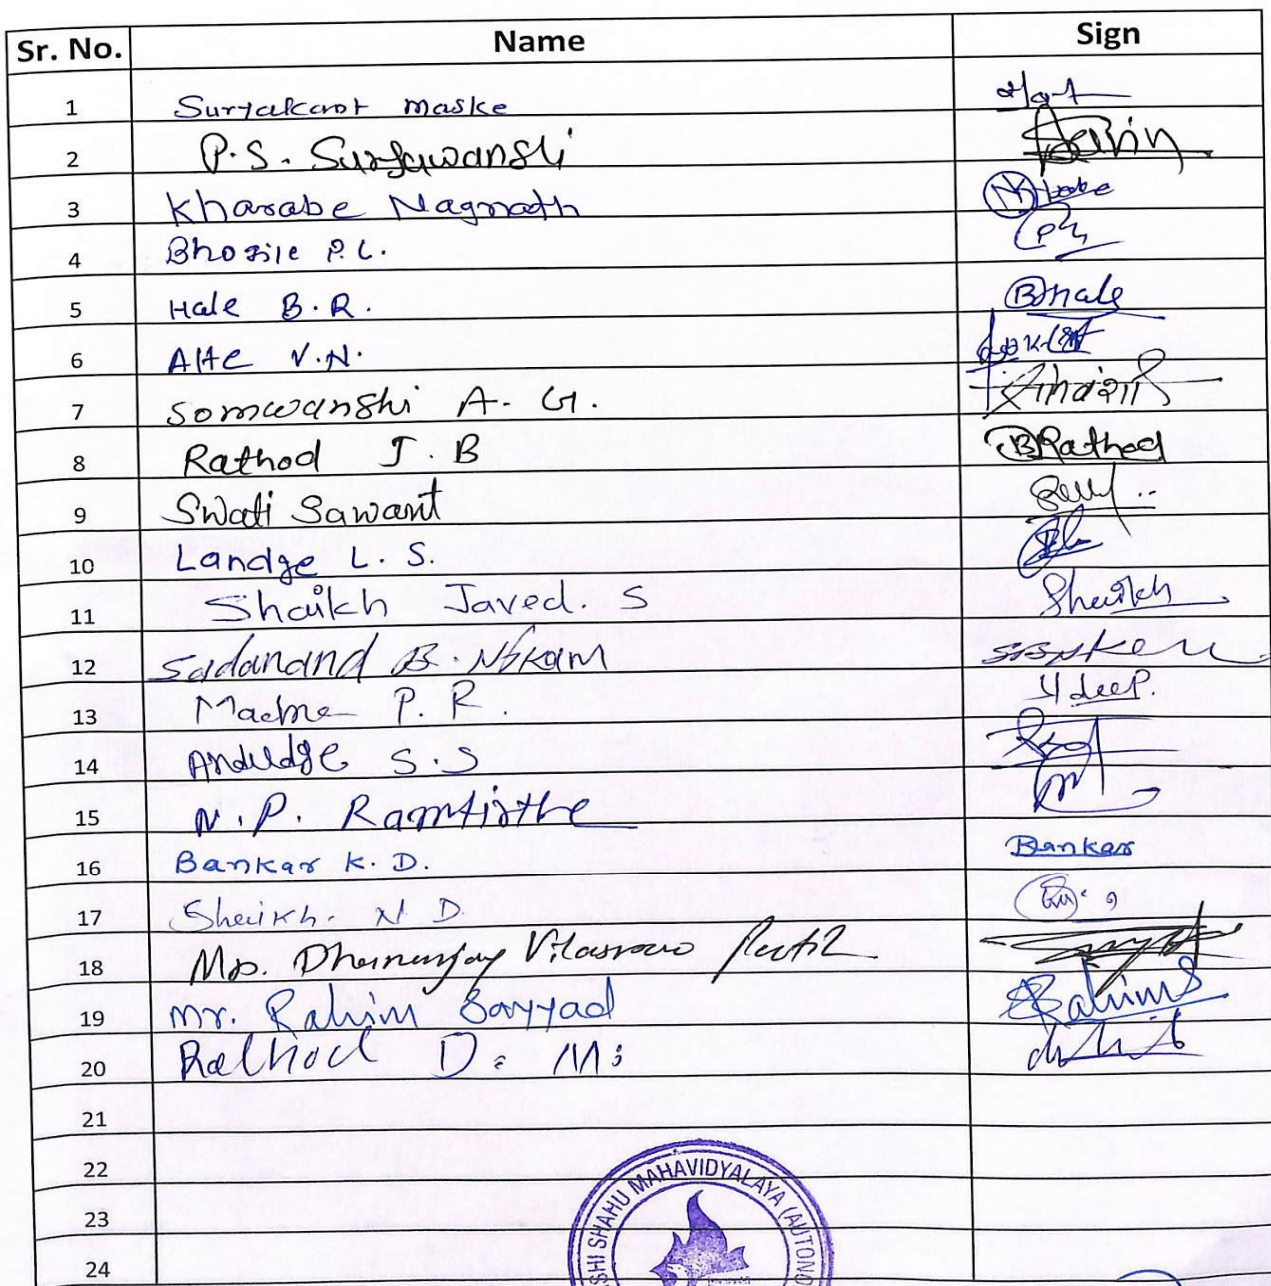 Sr. No. Name Sign
1 Suryakant maske
2 P.S. Suryawanshi
3 Kharabe Nagnath
4 Bhosile P.L.
5 Hale B.R. BHale
6 Alte V.N.
7 Somwanshi A. G.
8 Rathod J. B Rathod
9 Swati Sawant
10 Landge L. S.
11 Shaikh Javed. S Shaikh
12 Sadanand B. Nikam
13 Madne P. R.
14 Andudge S.S
15 N.P. Ramtirthe
16 Bankar K.D. Bankar
17 Shaikh. N D.
18 Mr. Dhananjay Vilasrao Patil
19 Mr. Rahim Sayyad RahimS
20 Rathod D. M.
21
22
23
24
SHI SHAHU MAHAVIDYALAYA (AUTONO